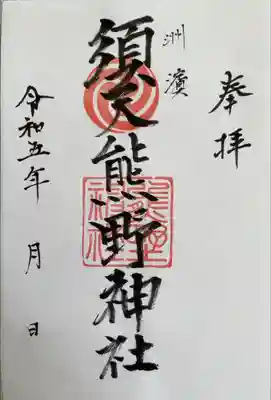 奉拝
洲濱
須天熊野神社
令和五年 月 日